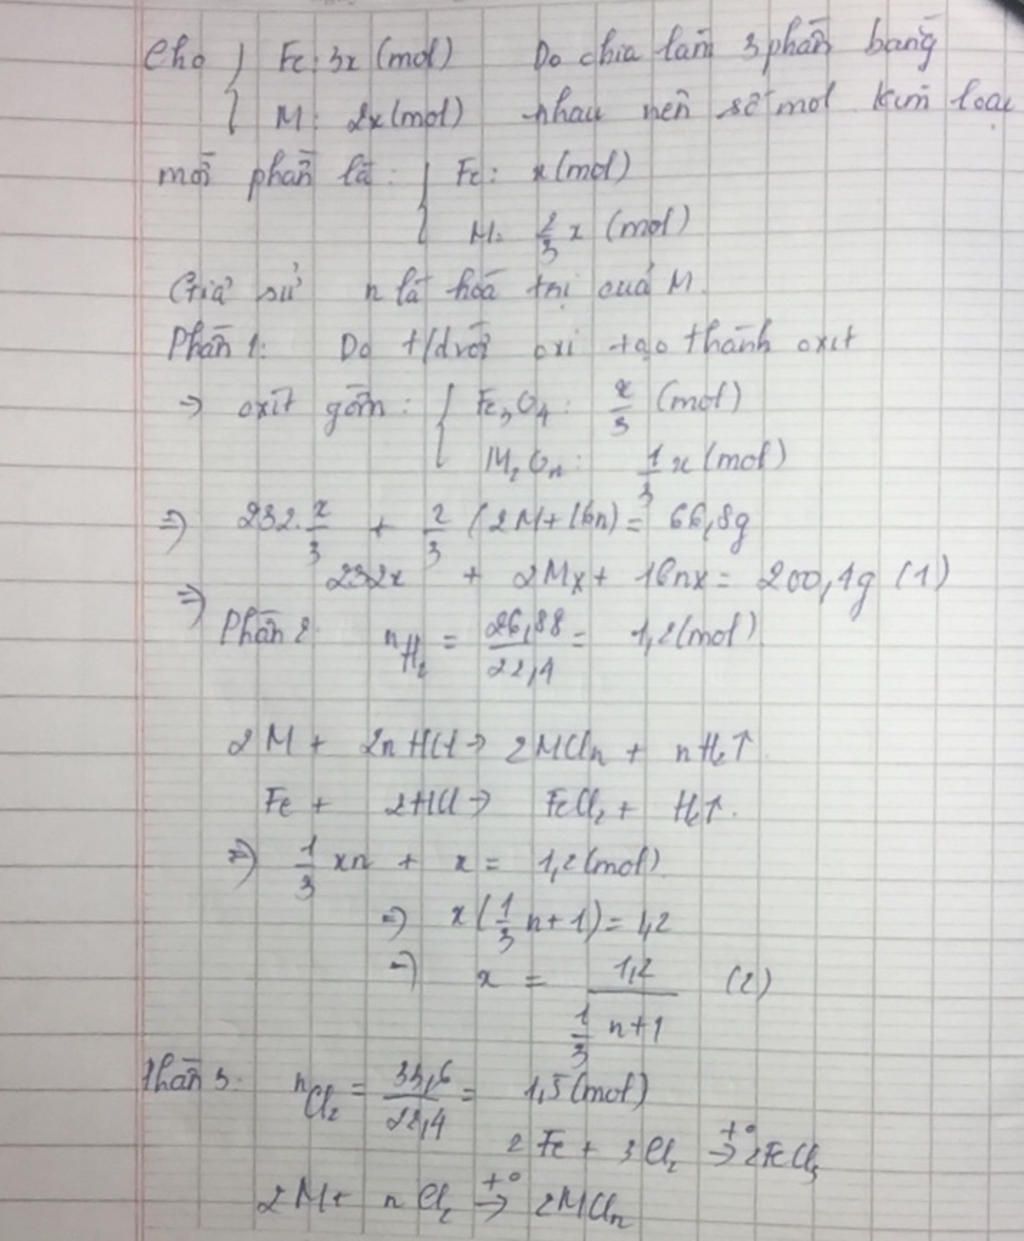 Cho { Fe: 3x (mol) Do chia làm 3 phần bằng
M: 2x (mol) nhau nên số mol kim loại
mỗi phần là: { Fe: x (mol)
M: 2/3 x (mol)
Giả sử n là hoá trị của M.
Phần 1: Do t/d với oxi tạo thành oxit
→ oxit gồm: { Fe3O4: x/3 (mol)
M2On: 1/3 x (mol)
⇒ 232. x/3 + x/3 (2M + 16n) = 66,8g
⇒ 232x + 2Mx + 16nx = 200,4g (1)
Phần 2: nH2 = 26,88/22,4 = 1,2 (mol)
2M + 2nHCl → 2MCln + nH2↑
Fe + 2HCl → FeCl2 + H2↑.
⇒ 1/3 xn + x = 1,2 (mol)
⇒ x (1/3 n + 1) = 1,2
⇒ x = 1,2 / (1/3 n + 1) (2)
Phần 3: nCl2 = 33,6/22,4 = 1,5 (mol)
2Fe + 3Cl2 t°→ 2FeCl3
2M + nCl2 t°→ 2MCln